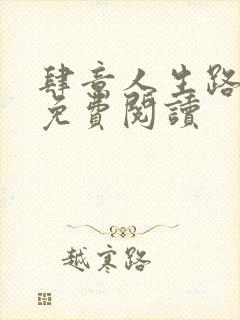 肆意人生路
免費閱讀
越寒路